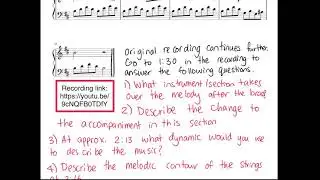 Original recording continues further.
Go to 1:30 in the recording to
answer the following questions.
Recording link:
https://youtu.be/
9cNQFB0TDfY
1) What instrument/section takes
over the melody after the
2) Describe the change to
the accompaniment in this section
3) At approx. 2:13 what dynamic would you use
to describe the music?
4) Describe the melodic contour of the strings